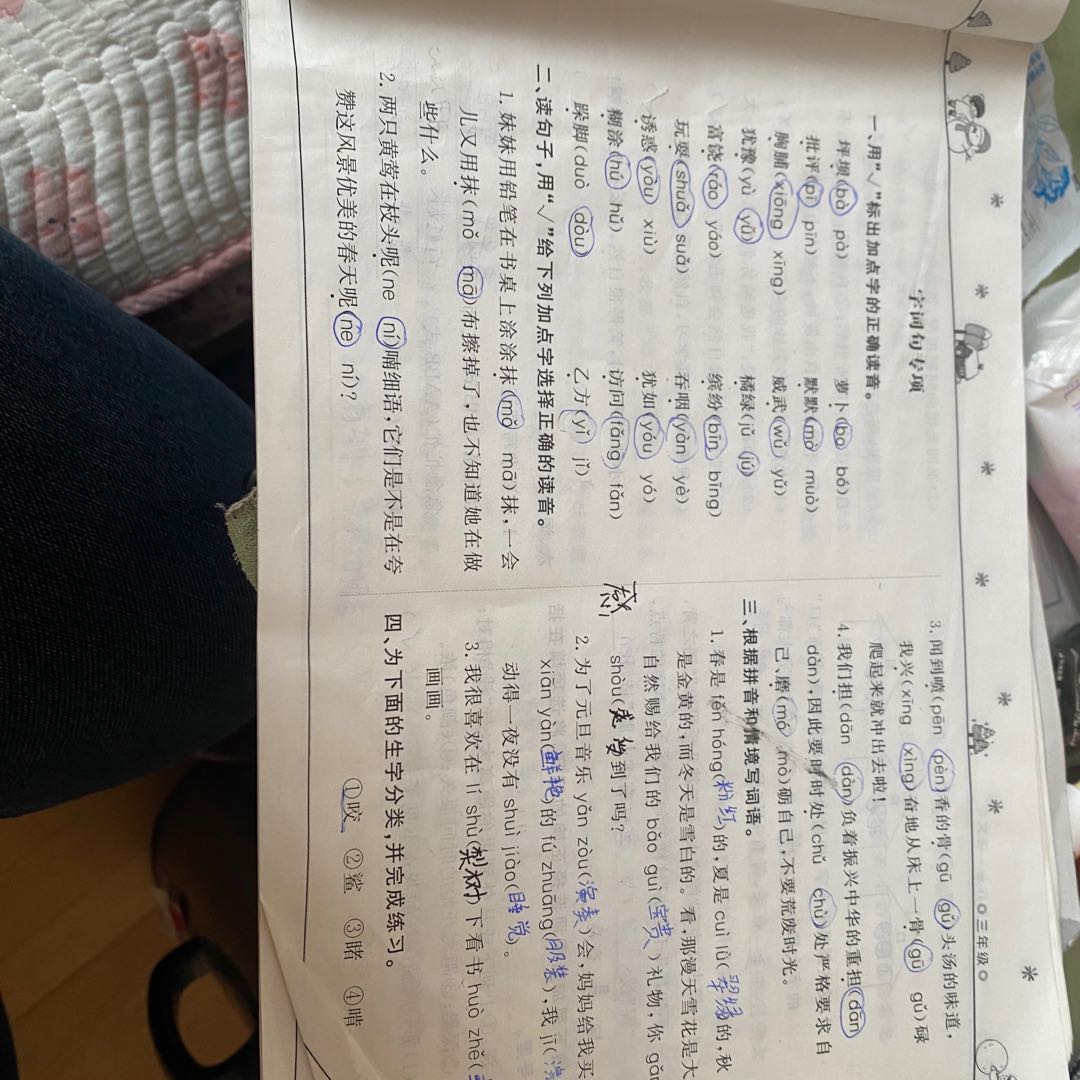 三年级
字词句专项
一、用“√”标出加点字的正确读音。
坪坝(bà pà) 萝卜(bo bó)
批评(pī pīn) 默默(mò muò)
胸脯(xiōng xīng) 威武(wǔ yǔ)
犹豫(yù yǔ) 橘绿(jǔ jú)
富饶(ráo yáo) 缤纷(bīn bīng)
玩耍(shuǎ suǎ) 吞咽(yàn yè)
诱惑(yòu xiù) 犹如(yóu yó)
糊涂(hú hǔ) 访问(fǎng fǎn)
跺脚(duò dòu) 乙方(yǐ jǐ)
二、读句子,用“√”给下列加点字选择正确的读音。
1. 妹妹用铅笔在书桌上涂涂抹(mǒ mā)抹,一会
儿又用抹(mǒ mā)布擦掉了,也不知道她在做
些什么。
2. 两只黄莺在枝头呢(ne ní)喃细语,它们是不是在夸
赞这风景优美的春天呢(ne ní)?
3. 闻到喷(pēn pèn)香的骨(gū gǔ)头汤的味道,
我兴(xīng xìng)奋地从床上一骨(gū gǔ)碌
爬起来就冲出去啦!
4. 我们担(dān dàn)负着振兴中华的重担(dān
dàn),因此要时时处(chǔ chù)处严格要求自
己、磨(mó mò)砺自己,不要荒废时光。
三、根据拼音和情境写词语。
1. 春是 fěn hóng(粉红)的,夏是 cuì lǜ(翠绿)的,秋
是金黄的,而冬天是雪白的。看,那漫天雪花是大
自然赐给我们的 bǎo guì(宝贵)礼物,你 gǎn
感
shòu(到了吗?
2. 为了元旦音乐 yǎn zòu(演奏)会,妈妈给我买
xiān yàn(鲜艳)的 fú zhuāng(服装),我 jī(
动得一夜没有 shuì jiào(睡觉)。
3. 我很喜欢在 lí shù(梨树)下看书 huò zhě(
画画。
四、为下面的生字分类,并完成练习。
①咬 ②鲨 ③睹 ④啃